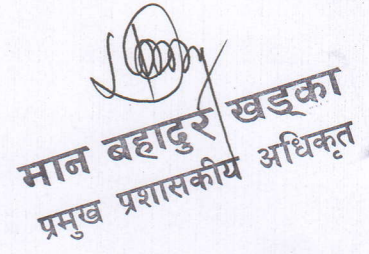 मान बहादुर खड्का
प्रमुख प्रशासकीय अधिकृत